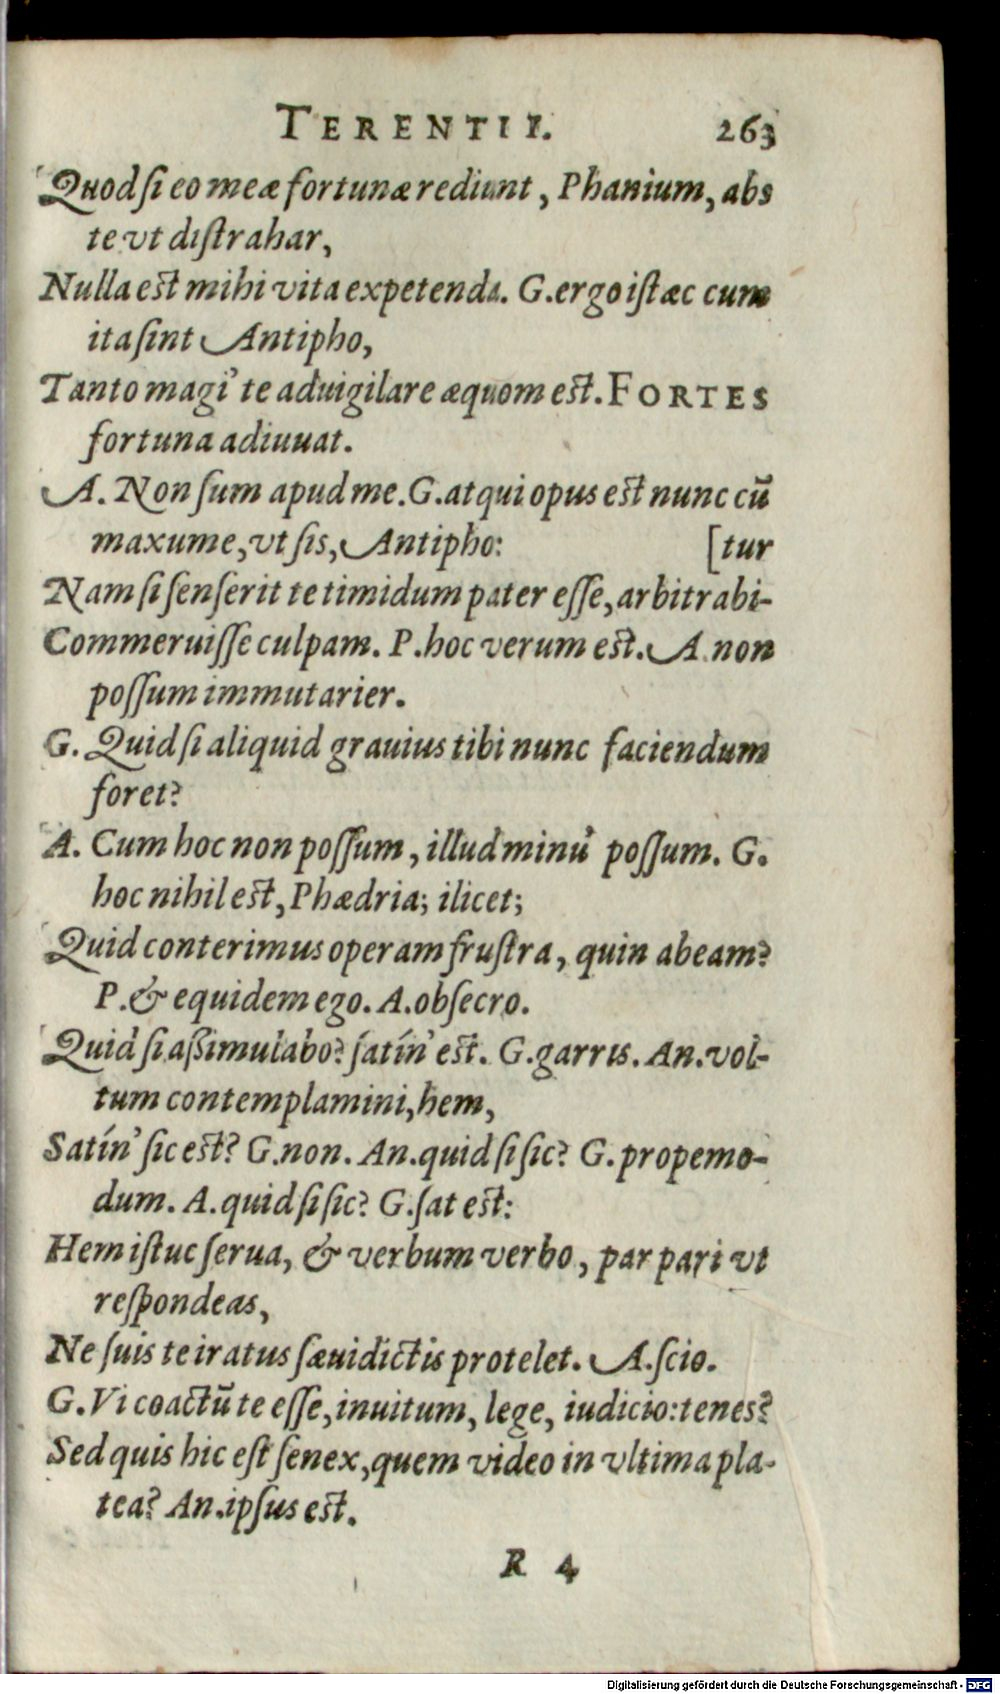 TERENTII. 263
Quod si eo meæ fortunæ rediunt, Phanium, abs
te vt distrahar,
Nulla est mihi vita expetenda. G. ergo istæc cum
ita sint Antipho,
Tanto magi' te aduigilare æquom est. FORTES
fortuna adiuuat.
A. Non sum apud me. G. atqui opus est nunc cū
maxume, vt sis, Antipho: [tur
Nam si senserit te timidum pater esse, arbitrabi-
Commeruisse culpam. P. hoc verum est. A. non
possum immutarier.
G. Quid si aliquid grauius tibi nunc faciendum
foret?
A. Cum hoc non possum, illud minu' possum. G.
hoc nihil est, Phædria; ilicet;
Quid conterimus operam frustra, quin abeam?
P. & equidem ego. A. obsecro.
Quid si aßimulabo? satín' est. G. garris. An. vol-
tum contemplamini, hem,
Satín' sic est? G. non. An. quid si sic? G. propemo-
dum. A. quid si sic? G. sat est:
Hem istuc serua, & verbum verbo, par pari vt
respondeas,
Ne suis te iratus sæuidictis protelet. A. scio.
G. Vi coactū te esse, inuitum, lege, iudicio: tenes?
Sed quis hic est senex, quem video in vltima pla-
tea? An. ipsus est.
R 4
Digitalisierung gefördert durch die Deutsche Forschungsgemeinschaft - DFG